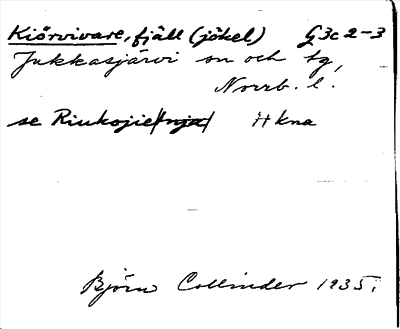 Kiörvivare, fjäll (jökel) G3c 2-3
Jukkasjärvi sn och tg,
Norrb. l.
se Riukojie/nja/ Hkna
Björn Collinder 1935.